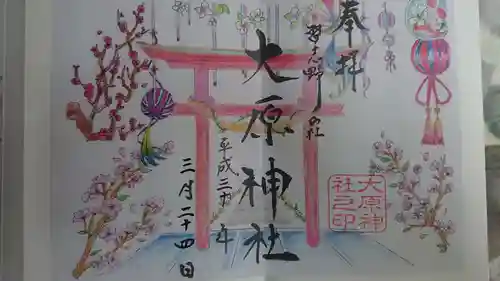 奉拝
習志野
大原神社
平成三十
三月二十四日
大原神
社之印